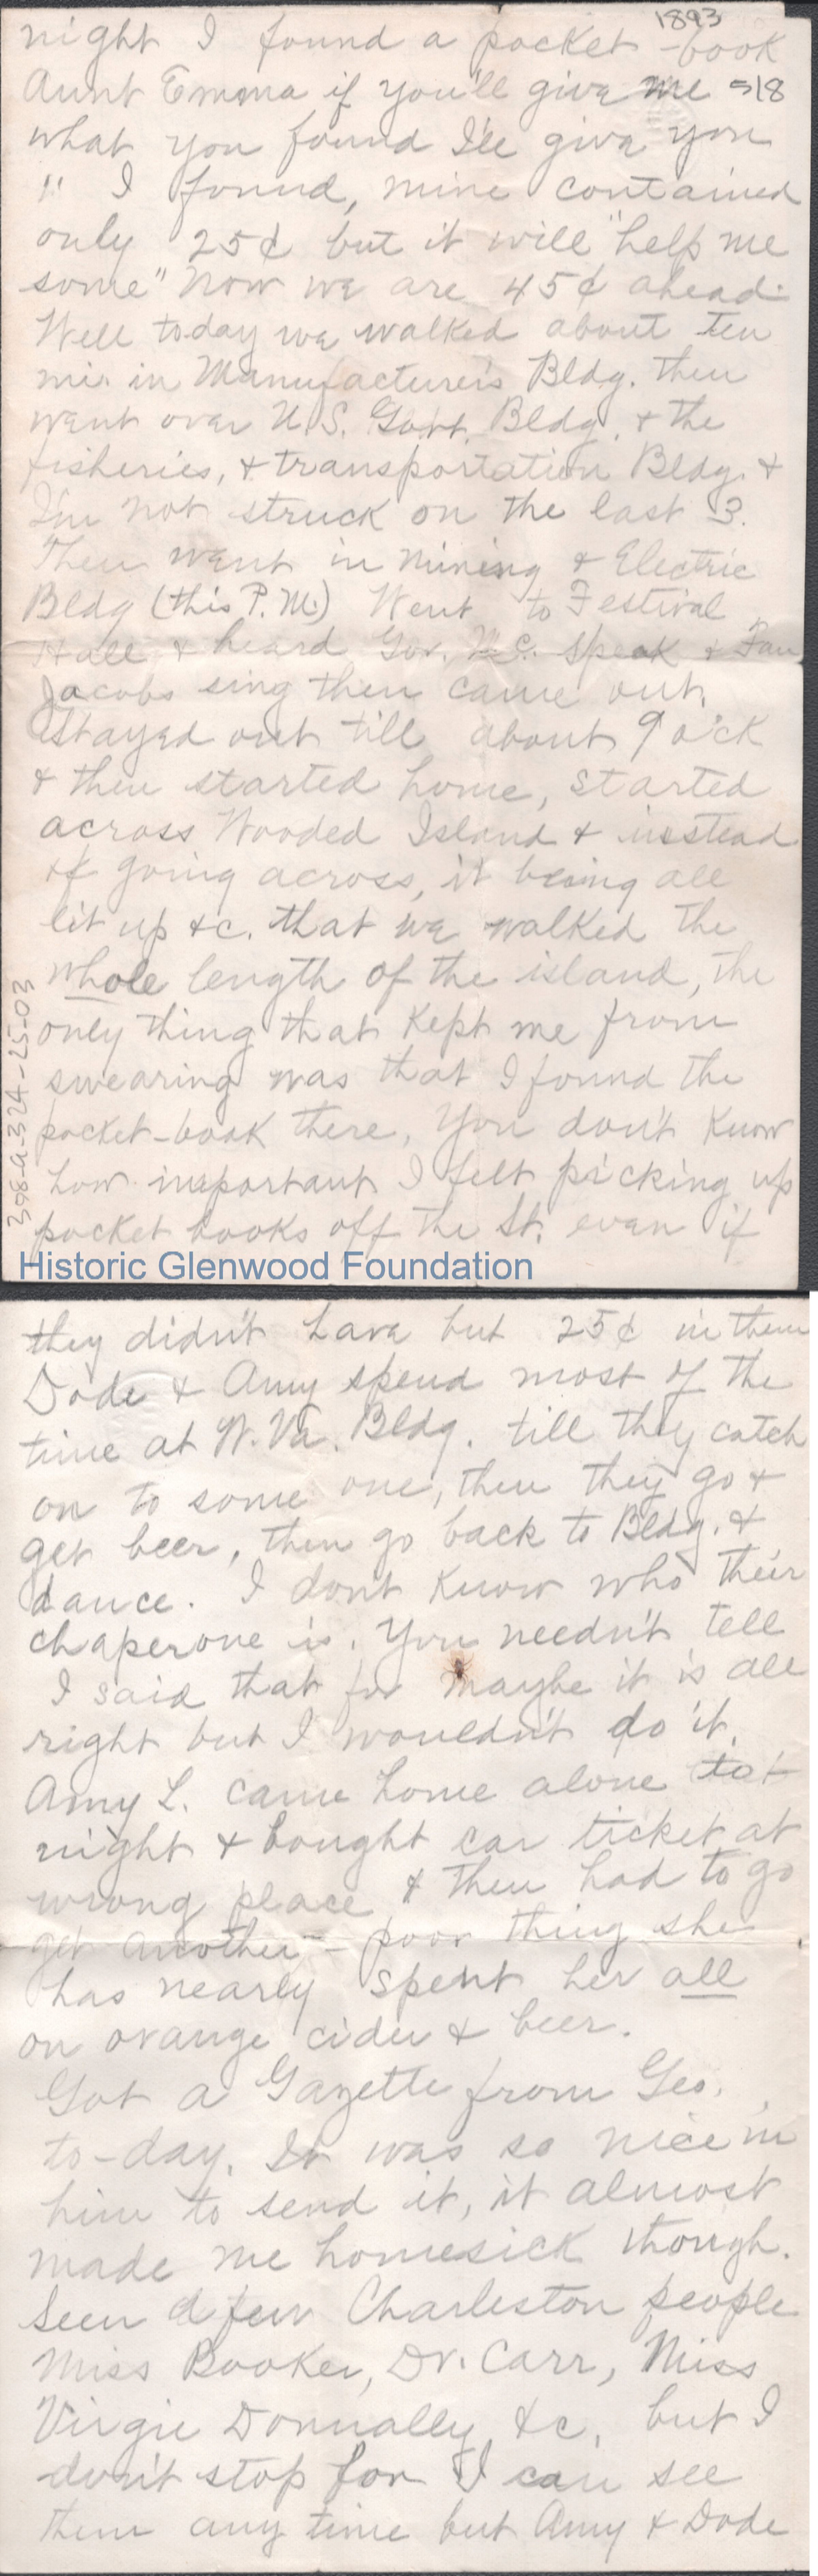 1893
night I found a pocket-book
Aunt Emma if you'll give me =18
what you found I'll give you
" I found, mine contained
only 25¢ but it will "help me
some" now we are 45¢ ahead.
Well today we walked about ten
mi. in Manufacturer's Bldg. then
went over U.S. Govt. Bldg. & the
fisheries, & transportation Bldg. &
I'm not struck on the last 3.
Then went in mining & Electric
Bldg (this P.M.) Went to Festival
Hall & heard Gov. Mc. speak & Fan
Jacobs sing then came out.
Stayed out till about 9 o'ck
& then started home, started
across Wooded Island & instead
of going across, it being all
lit up &c. that we walked the
whole length of the island, the
only thing that kept me from
swearing was that I found the
pocket-book there, You don't know
how important I felt picking up
pocket books off the St. even if
398-a-324-25-03
Historic Glenwood Foundation
they didn't have but 25¢ in them
Dode & Amy spend most of the
time at W. Va. Bldg. till they catch
on to some one, then they go &
get beer, then go back to Bldg. &
dance. I don't know who their
chaperone is. You needn't tell
I said that for maybe it is all
right but I wouldn't do it.
Amy L. came home alone
night & bought car ticket at
wrong place & then had to go
get another - poor thing she
has nearly spent her all
on orange cider & beer.
Got a Gazette from Geo.
to-day. It was so nice in
him to send it, it almost
made me homesick though.
Seen a few Charleston people
Miss Booker, Dr. Carr, Miss
Virgie Donnally, &c, but I
don't stop for I can see
them any time but Amy & Dode